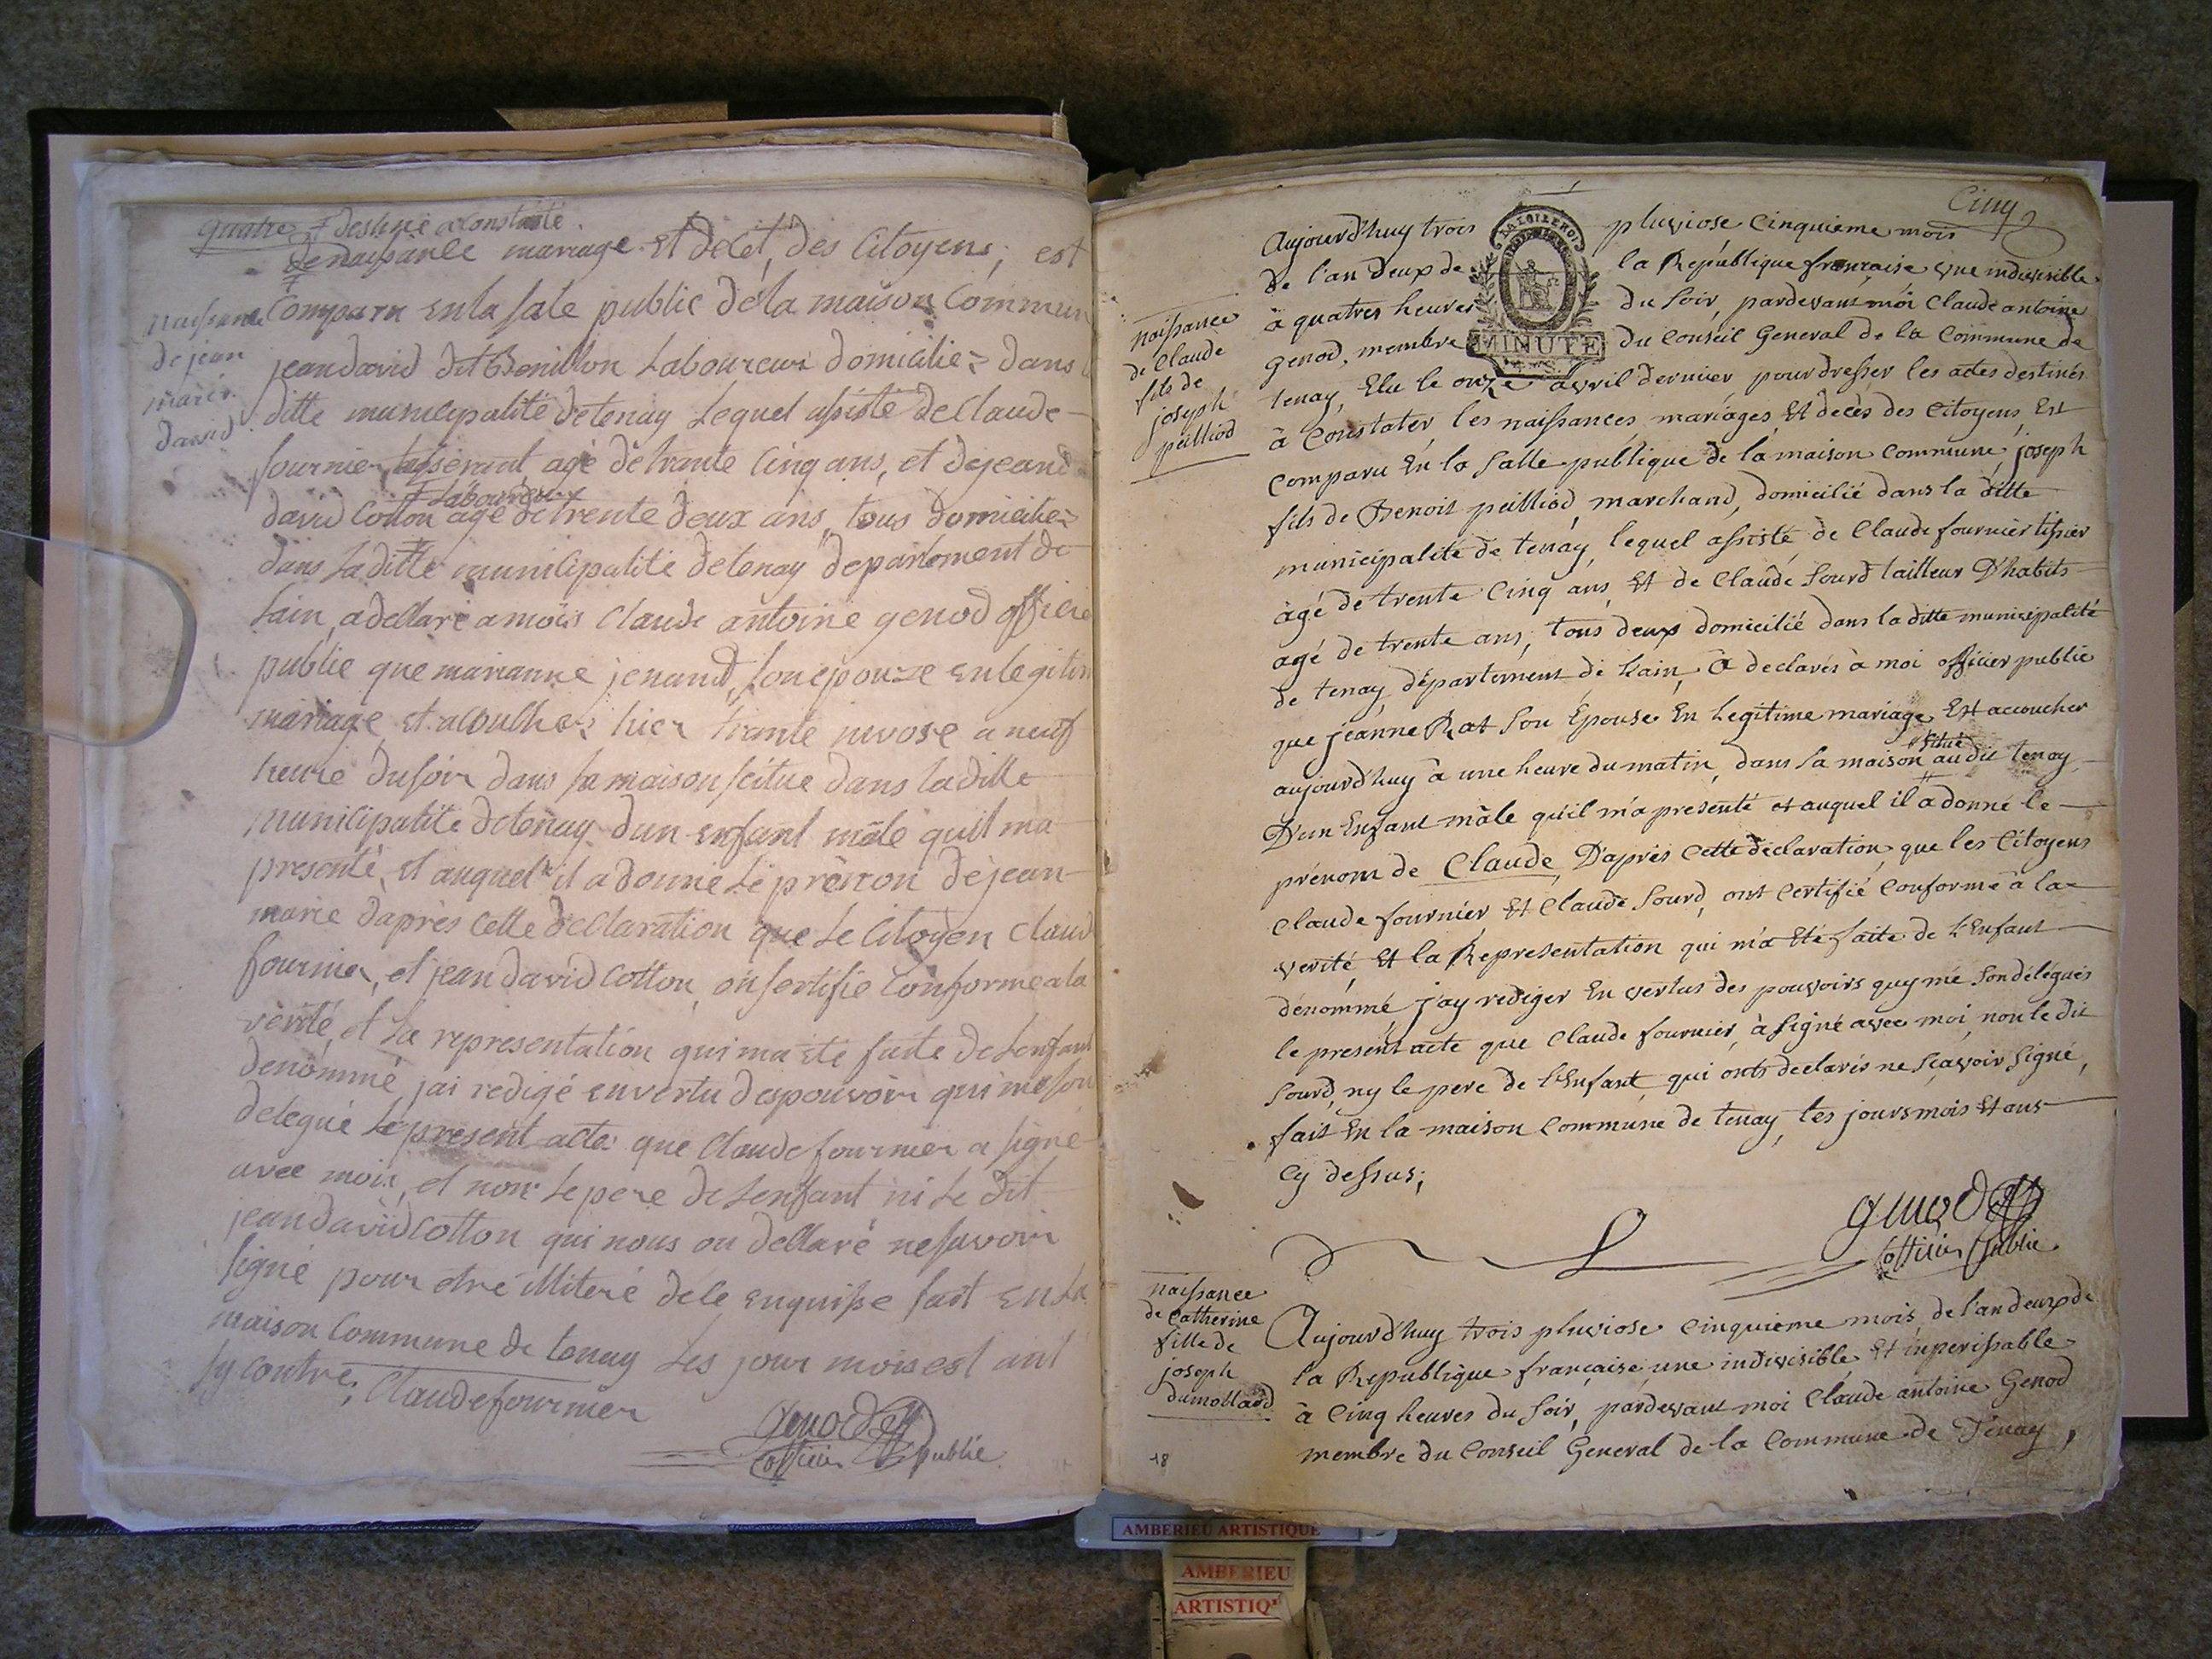 quatre ≠ destiné a Constaté.
de naissance mariage et décèt, des Citoyens, est
naissance
de jean
marie
david
Comparu en la sale public dela maison Commun
jean david dit Benillon Laboureur domicilie dans
ditte municipalité de tenay Lequel assisté de Claude
fournier tisserant agé de trante Cinq ans, et de jean
≠ Laboureur
david Cotton agé de trente deux ans, tous domicilie
dans La ditte municipalité de tenay departement de
Lain, a dellaré a mois Claude antoine genod officie
public que marianne jenand, son epouze en legitim
mariage, et acoulhes hier trante nivose a neuf
heure du soir dans sa maison scitue dans la ditte
municipalité de tenay d'un enfant mâle quil ma
presenté, et auquel il a donné Le prénon de jean
marie daprès cette dellaration que Le Citoyen Claud
fournier, et jean david Cotton, on sertifié Conforme a la
verité, et La representation qui ma eté faite de Lenfant
denommé, jai redigé en vertu des pouvoir qui me son
delegué Le present acte que Claude fournier a signé
avec mois, et non Le pere de Lenfant ni Le dit
jean david Cotton qui nous on dellaré ne savoir
signé pour etre illiteré de le enquisse fait en La
maison Commune de tenay Les jour mois est ant
sy contre, Claude fournier
genod
officier public
Cinq
naissance
de Claude
fils de
joseph
peilliod
LA LOI LE ROI
MINUTE
Aujourd'huy trois pluviose cinquieme mois
de l'an deux de la République française une indivisible
à quatres heures du soir, pardevant moi Claude antoine
genod, membre du Conseil General de la Commune de
tenay, Elu le onze avril dernier pour dresser les actes destinés
à Constater les naissances, mariages, Et decès des Citoyens, Est
comparu En la Salle publique de la maison Commune, joseph
fils de Benoit peilliod, marchand, domicilié dans la ditte
municipalité de tenay, lequel assisté de Claude fournier tissier
agé de trente Cinq ans, Et de Claude Sourd tailleur D'habits
agé de trente ans, tous deux domicilié dans la ditte municipalité
de tenay, département de Lain, à declarés à moi officier public
que jeanne Rat Son Epouse En Legitime mariage, Est accoucher
aujourd'huy à une heure du matin, dans sa maison situé au dit tenay
D'un Enfant mâle qu'il m'a presenté et auquel il a donné le
prénom de Claude, D'après cette déclaration que les Citoyens
Claude fournier Et Claude Sourd, ont certifié conforme à la
verité, Et la Representation qui m'a Eté faite de l'Enfant
dénommé j'ay rediger En vertus des pouvoirs quy me sondélégués
le présent acte que Claude fournier, à signé avec moi, non le dit
Sourd, ny le pere de l'Enfant, qui onts declarés ne sçavoir signé,
fait En la maison Commune de tenay, les jours mois Et ans
cy dessus;
genod
officier public
naissance
de Catherine
fille de
joseph
dumollard
Aujourd'huy trois pluviose cinquieme mois de l'an deux de
la République française une indivisible, Et inperissable
à Cinq heures du soir, pardevant moi Claude antoine Genod
membre du Conseil General de la Commune de Tenay,
18
AMBERIEU ARTISTIQUE
AMBERIEU
ARTISTIQ